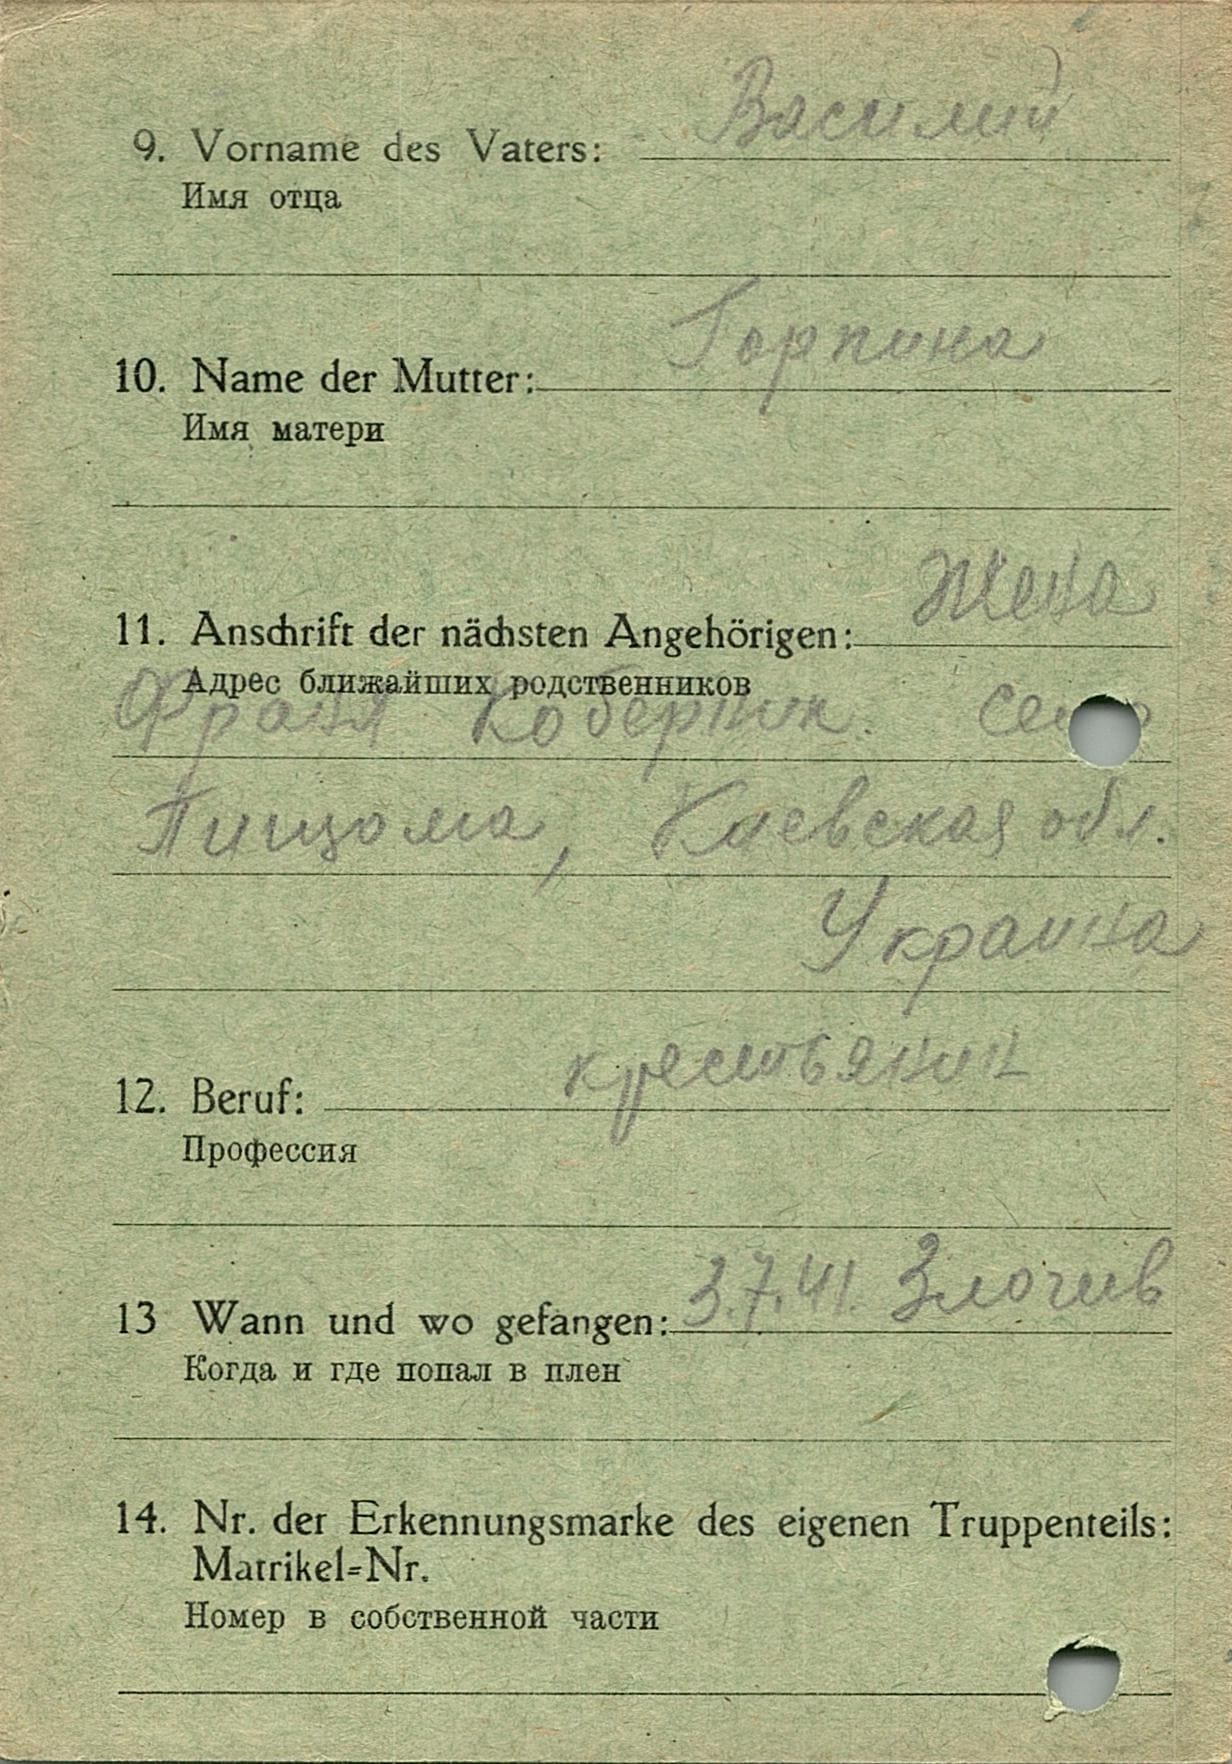 9. Vorname des Vaters: Василий
Имя отца
10. Name der Mutter: Горпина
Имя матери
11. Anschrift der nächsten Angehörigen: Жена
Адрес ближайших родственников
Коберник. село
Пищома, Киевская обл.
Украина
12. Beruf: крестьянин
Профессия
13 Wann und wo gefangen: 3.7.41. Злочив
Когда и где попал в плен
14. Nr. der Erkennungsmarke des eigenen Truppenteils:
Matrikel=Nr.
Номер в собственной части